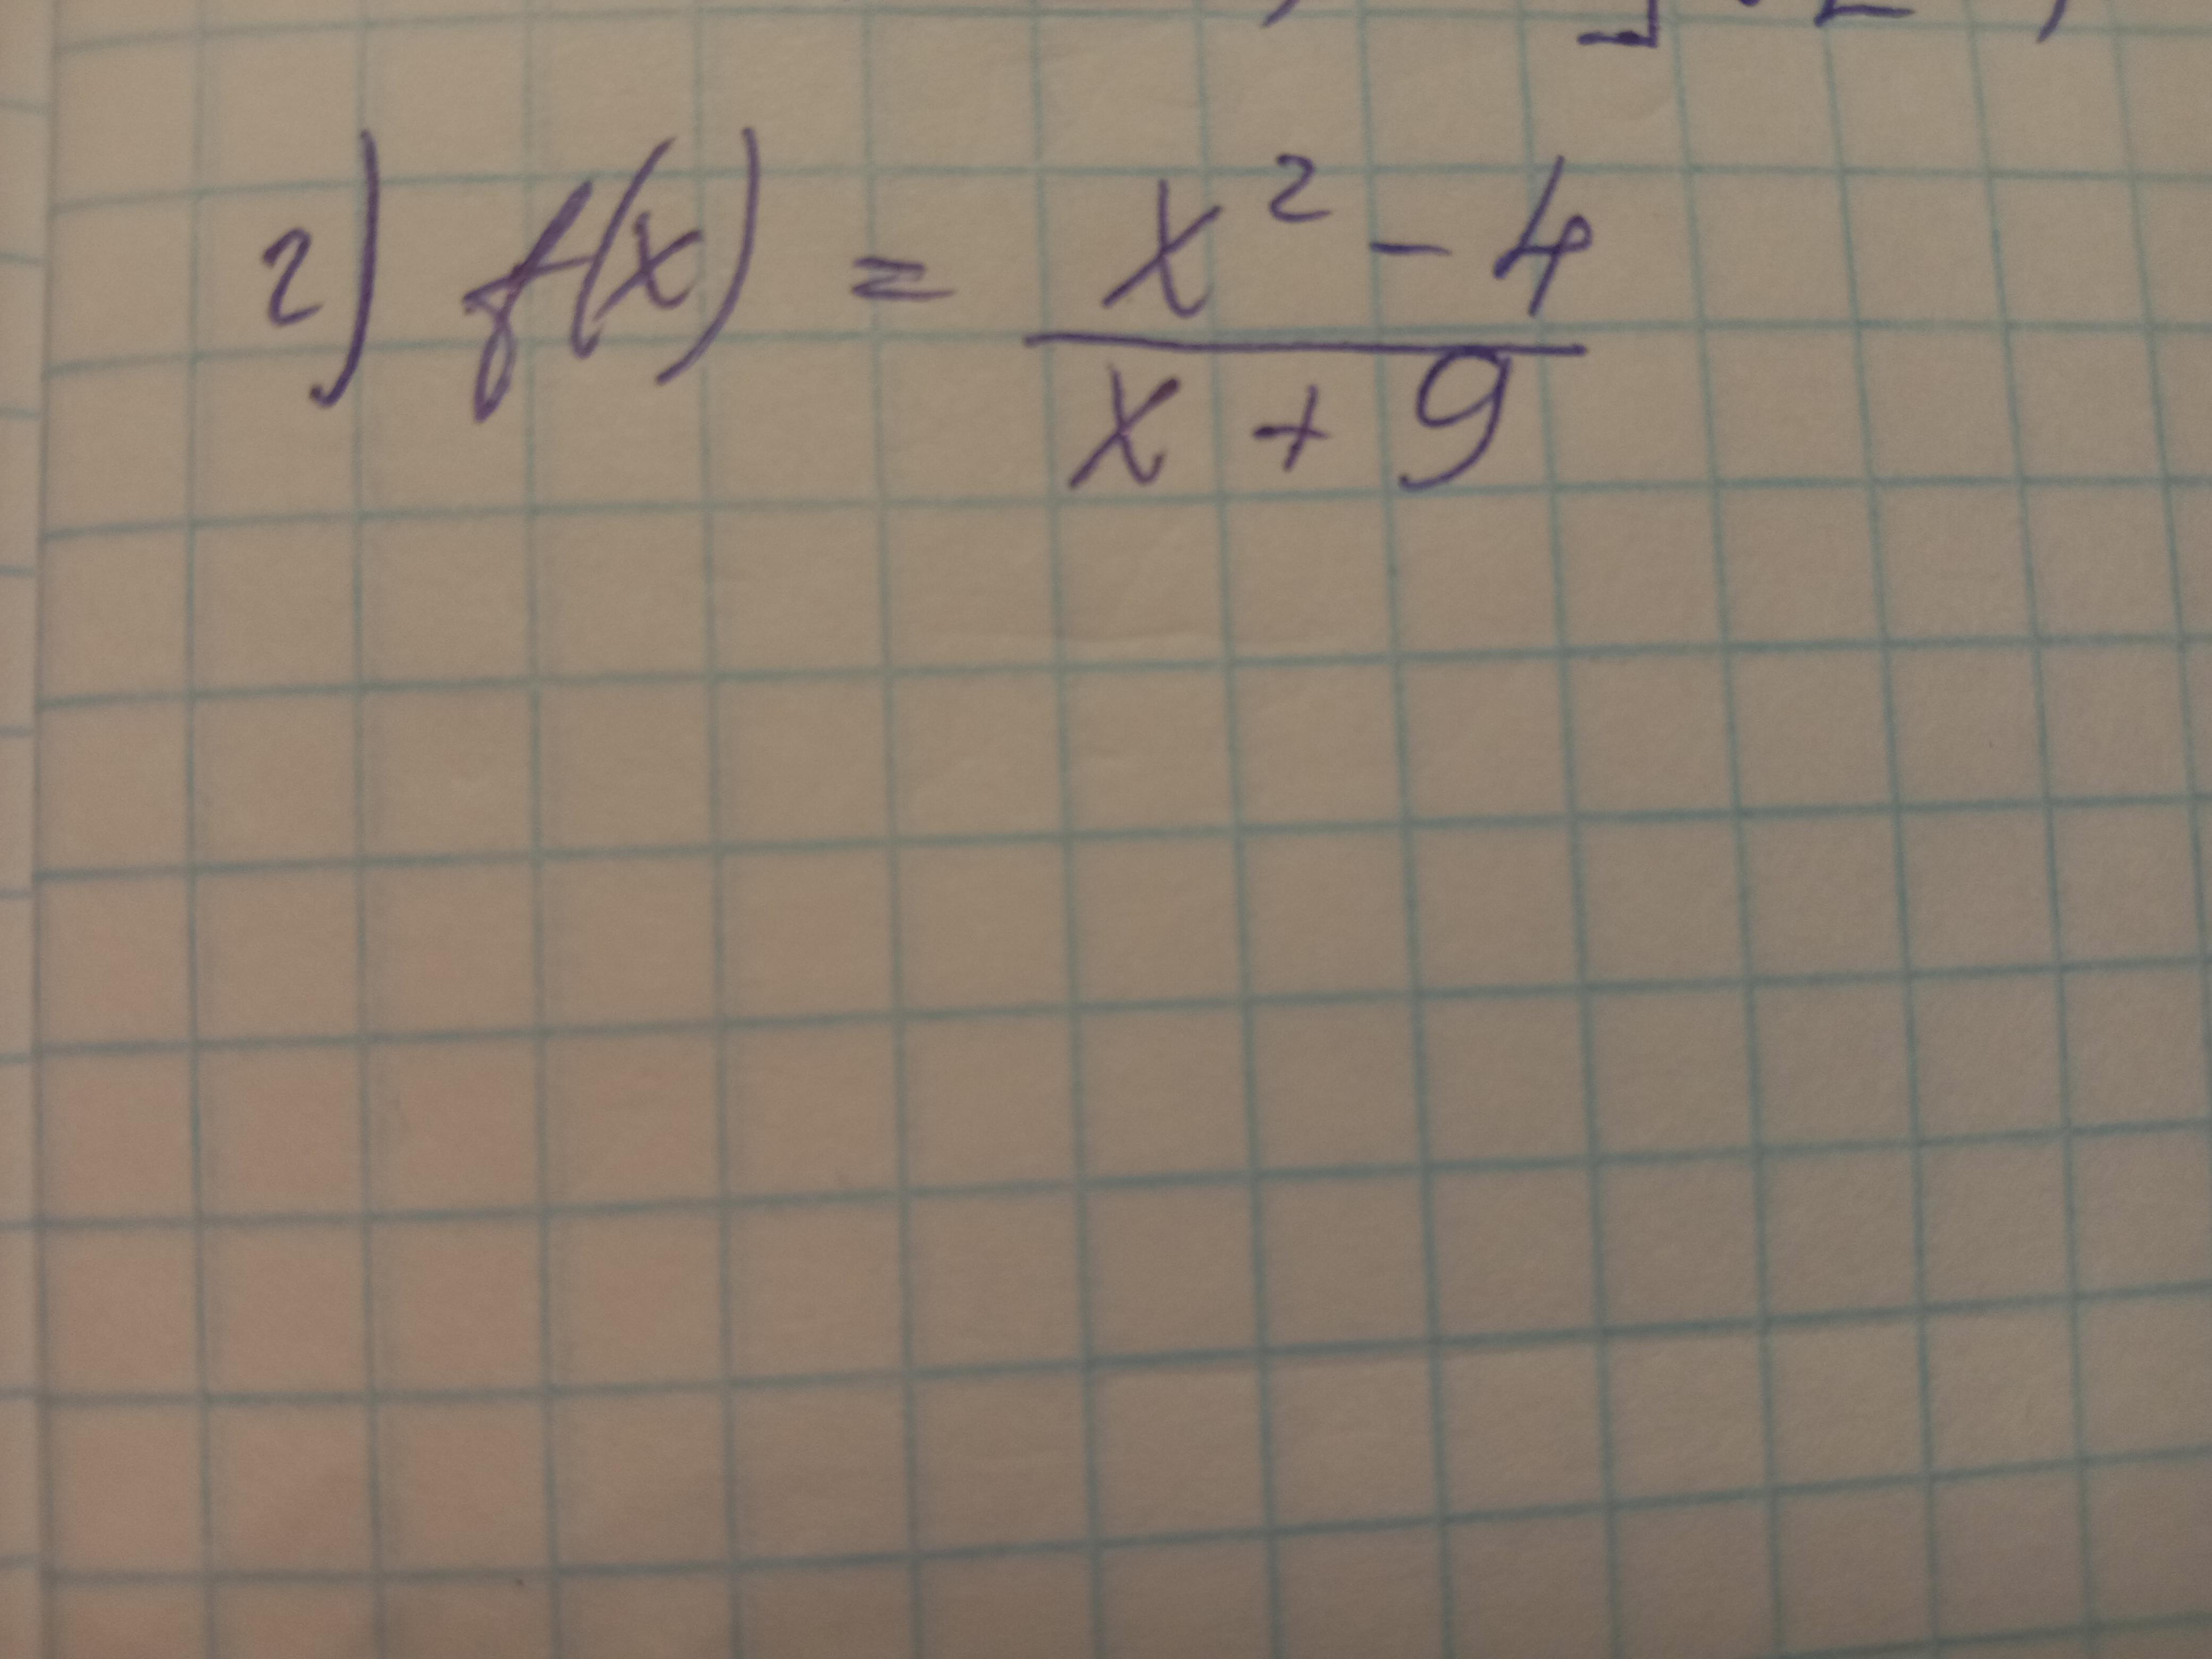 2) f(x) = x² - 4
x + 9